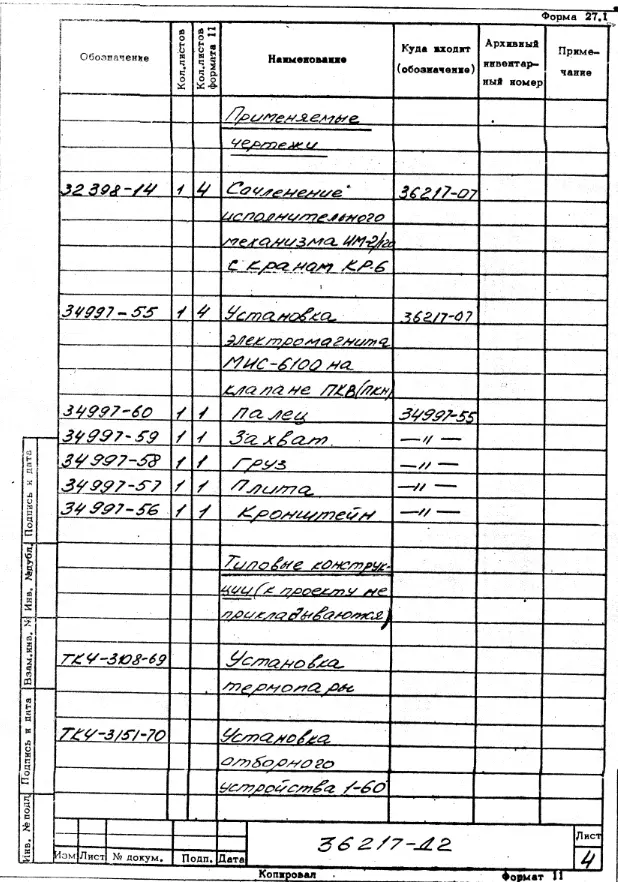 Форма 27.1
Обозначение Кол.листов Кол.листов формата 11 Наименование Куда входит (обозначение) Архивный инвентарный номер Примечание
Применяемые
чертежи
32398-14 1 4 Сочленение 36217-07
исполнительного
механизма ИМ-2/120
с краном КР-6
34997-55 1 4 Установка 36217-07
электромагнита
МИС-6100 на
клапане ПКВ(ПКН)
34997-60 1 1 Палец 34997-55
34997-59 1 1 Захват. —〃—
34997-58 1 1 Груз —〃—
34997-57 1 1 Плита —〃—
34997-56 1 1 Кронштейн —〃—
Типовые конструк-
ции (к проекту не
прикладываются)
ТК4-3108-69 Установка
термопары
ТК4-3151-70 Установка
отборного
устройства 1-60
Инв. № подл. Подпись и дата Взам.инв. № Инв. № дубл. Подпись и дата
36217-Д2
Лист
4
Изм Лист № докум. Подп. Дата
Копировал Формат 11